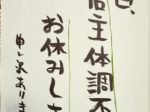 店主体調不
お休みしま
申し訳ありま